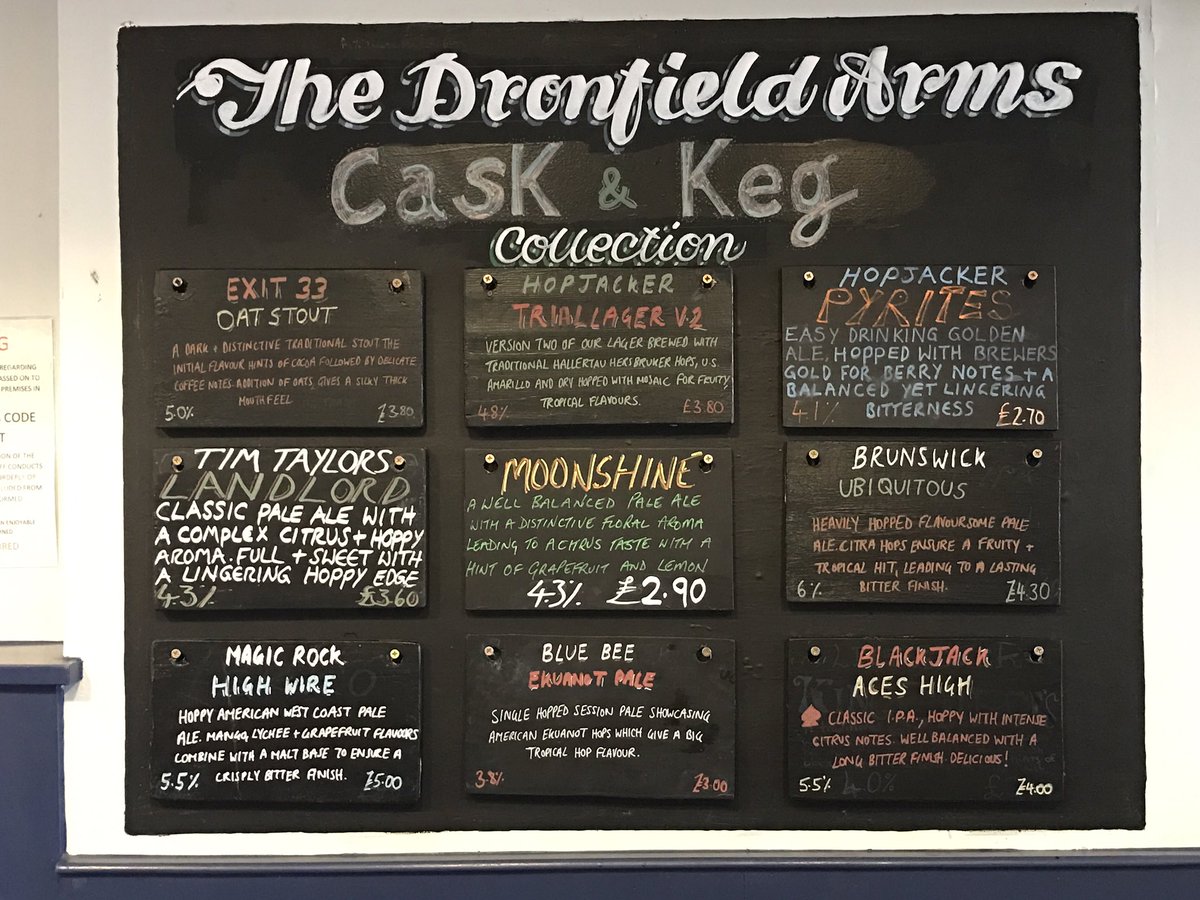 The Dronfield Arms
Cask & Keg
Collection
EXIT 33
OAT STOUT
A DARK + DISTINCTIVE TRADITIONAL STOUT THE
INITIAL FLAVOUR HINTS OF COCOA FOLLOWED BY DELICATE
COFFEE NOTES. ADDITION OF OATS GIVES A SILKY THICK
MOUTHFEEL
5.0% £3.80
HOPJACKER
TRIAL LAGER V.2
VERSION TWO OF OUR LAGER BREWED WITH
TRADITIONAL HALLERTAU HERSBRUKER HOPS, U.S.
AMARILLO AND DRY HOPPED WITH MOSAIC FOR FRUITY,
TROPICAL FLAVOURS.
4.8% £3.80
HOPJACKER
PYRITES
EASY DRINKING GOLDEN
ALE, HOPPED WITH BREWERS
GOLD FOR BERRY NOTES + A
BALANCED YET LINGERING
4.1% BITTERNESS £2.70
TIM TAYLORS
LANDLORD
CLASSIC PALE ALE WITH
A COMPLEX CITRUS + HOPPY
AROMA. FULL + SWEET WITH
A LINGERING HOPPY EDGE
4.3% £3.60
MOONSHINE
A WELL BALANCED PALE ALE
WITH A DISTINCTIVE FLORAL AROMA
LEADING TO A CITRUS TASTE WITH A
HINT OF GRAPEFRUIT AND LEMON
4.3% £2.90
BRUNSWICK
UBIQUITOUS
HEAVILY HOPPED FLAVOURSOME PALE
ALE. CITRA HOPS ENSURE A FRUITY +
TROPICAL HIT, LEADING TO A LASTING
BITTER FINISH.
6% £4.30
MAGIC ROCK
HIGH WIRE
HOPPY AMERICAN WEST COAST PALE
ALE. MANGO, LYCHEE + GRAPEFRUIT FLAVOURS
COMBINE WITH A MALT BASE TO ENSURE A
CRISPLY BITTER FINISH.
5.5% £5.00
BLUE BEE
EKUANOT PALE
SINGLE HOPPED SESSION PALE SHOWCASING
AMERICAN EKUANOT HOPS WHICH GIVE A BIG
TROPICAL HOP FLAVOUR.
3.8% £3.00
BLACKJACK
ACES HIGH
CLASSIC I.P.A., HOPPY WITH INTENSE
CITRUS NOTES. WELL BALANCED WITH A
LONG BITTER FINISH. DELICIOUS!
5.5% £4.00
G
REGARDING
ASSED ON TO
PREMISES IN
CODE
T
ION OF THE
CONDUCTS
FROM
ENJOYABLE